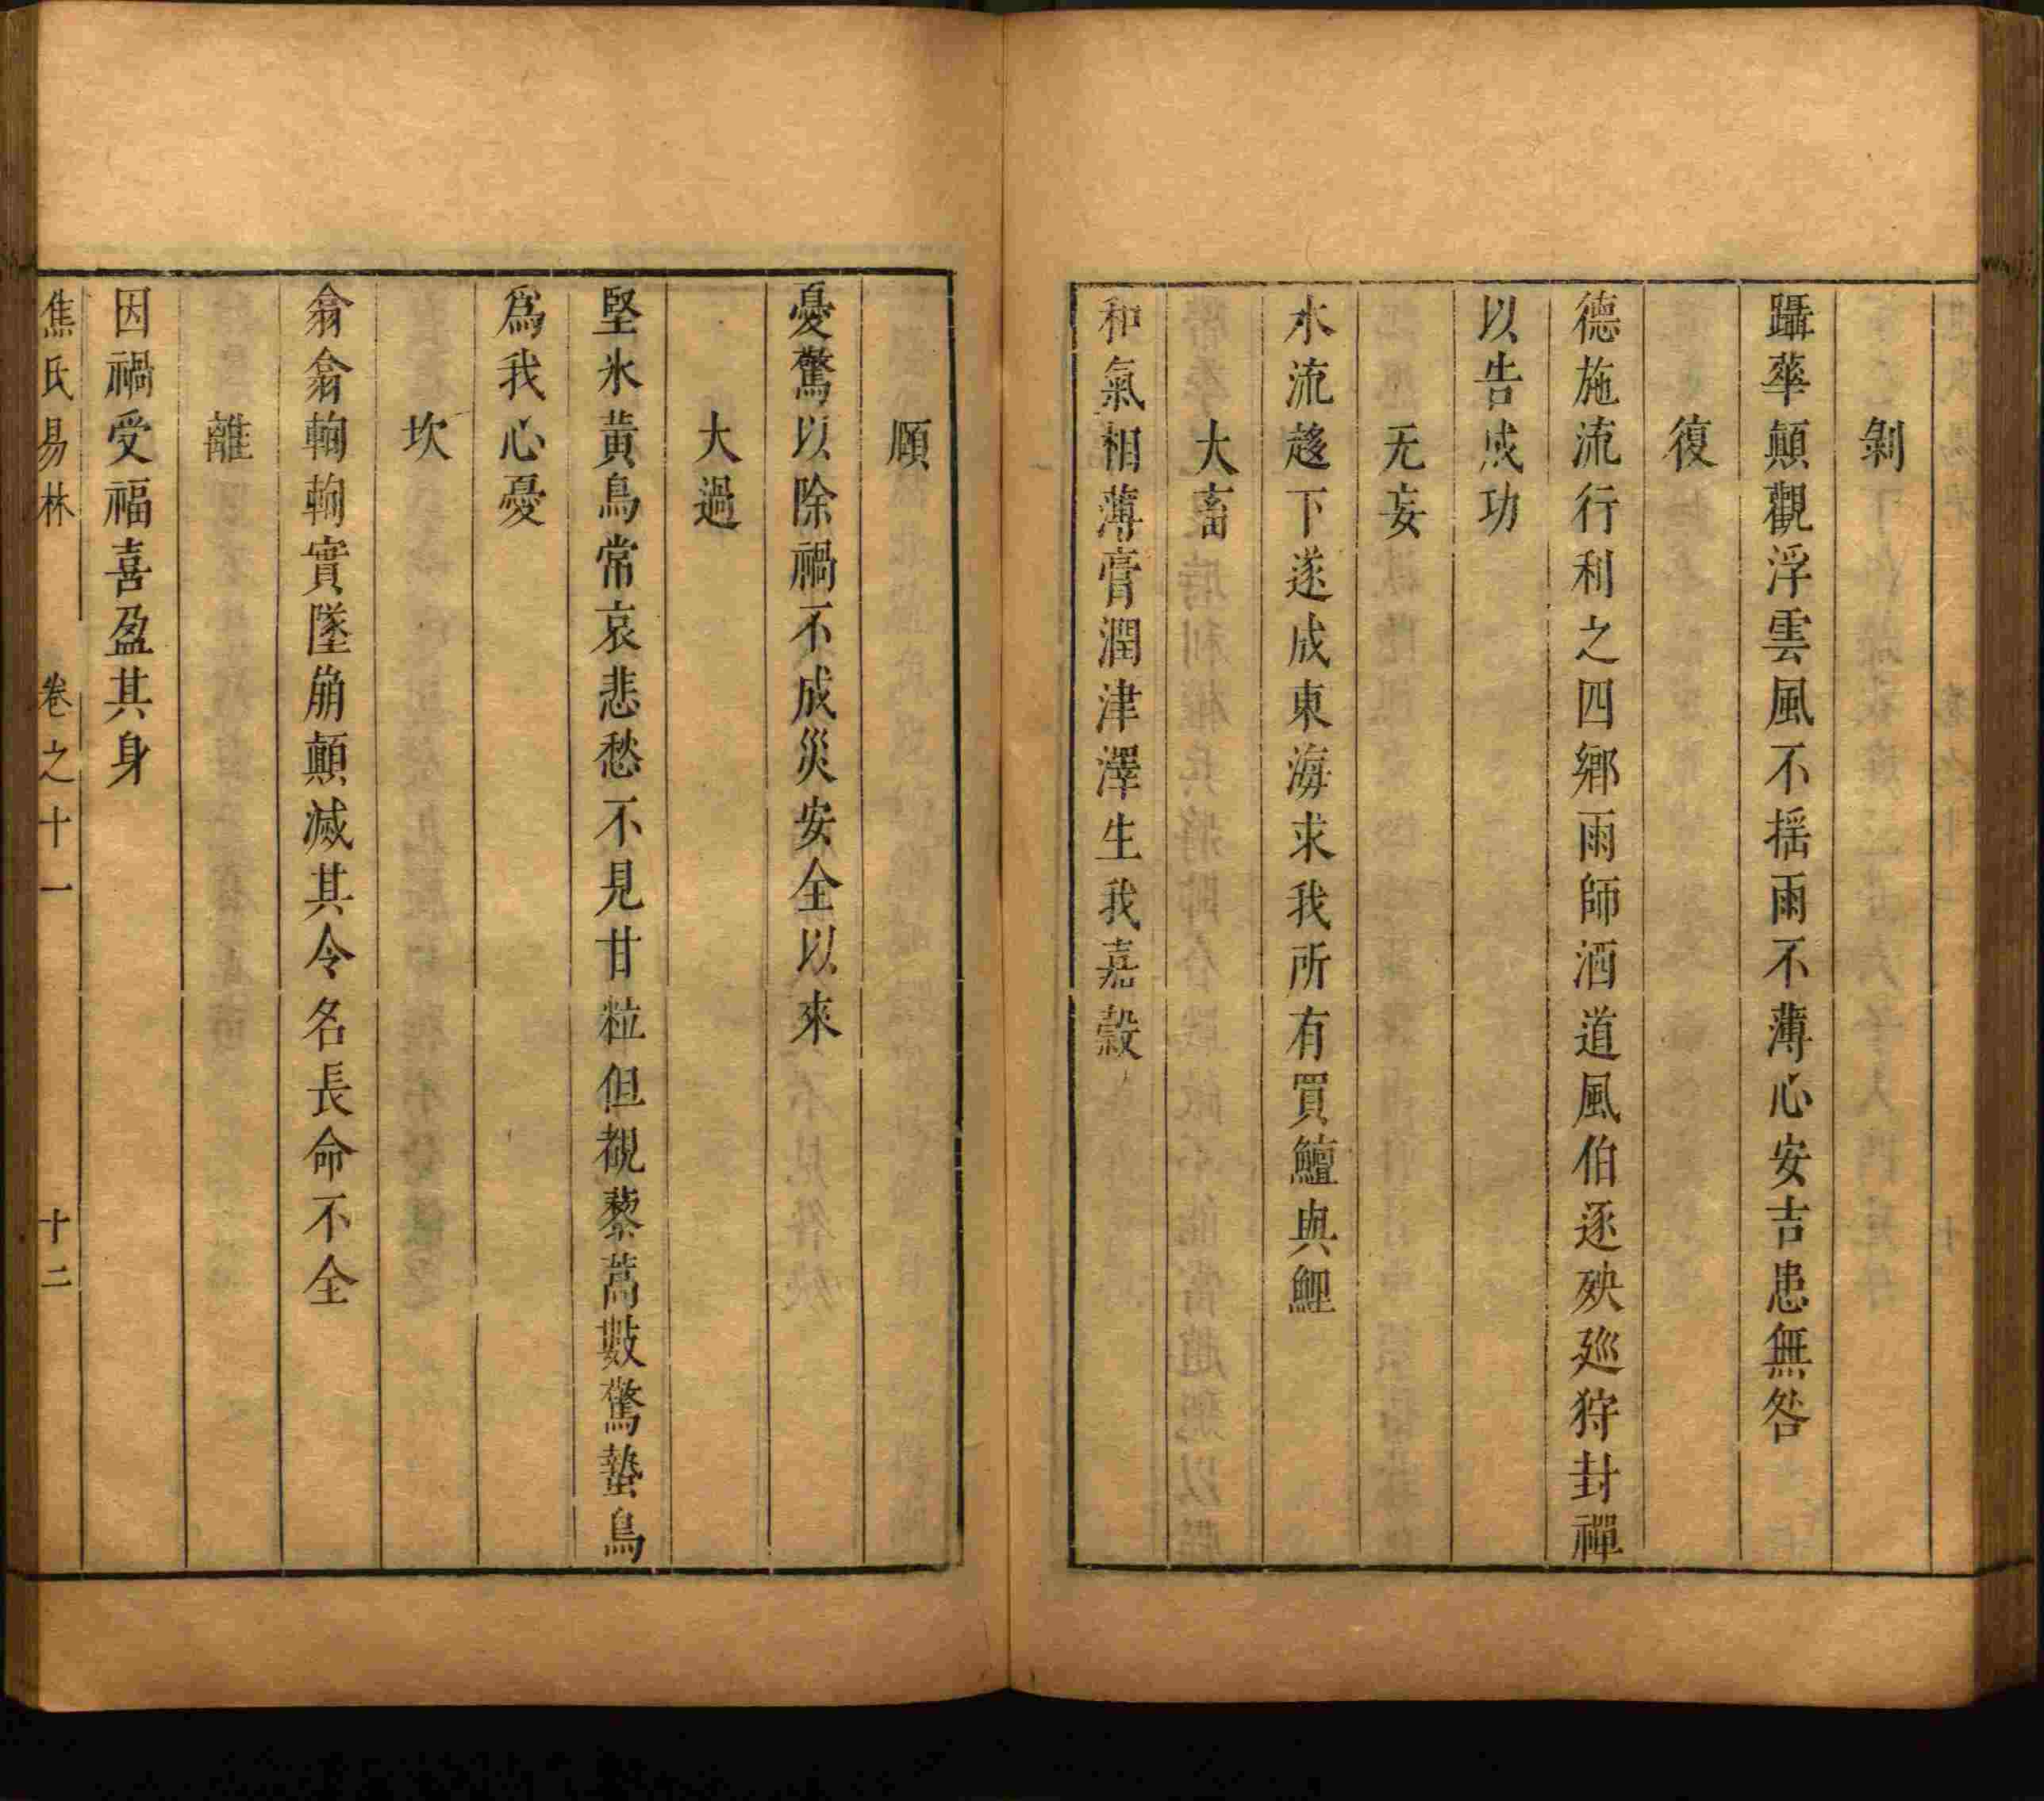 剝
躡華顛觀浮雲風不揺雨不薄心安吉患無咎
復
德施流行利之四鄉雨師洒道風伯逐殃廵狩封禪
以告成功
无妄
水流趍下遂成東海求我所有買鱣與鯉
大畜
和氣相薄膏潤津澤生我嘉糓
頥
憂驚以除禍不成災安全以來
大過
堅氷黃鳥常哀悲愁不見甘粒但覩藜蒿數驚蟄鳥
爲我心憂
坎
翕翕輷輷實墜崩顛滅其令名長命不全
離
因禍受福喜盈其身
焦氏易林 卷之十一 十二